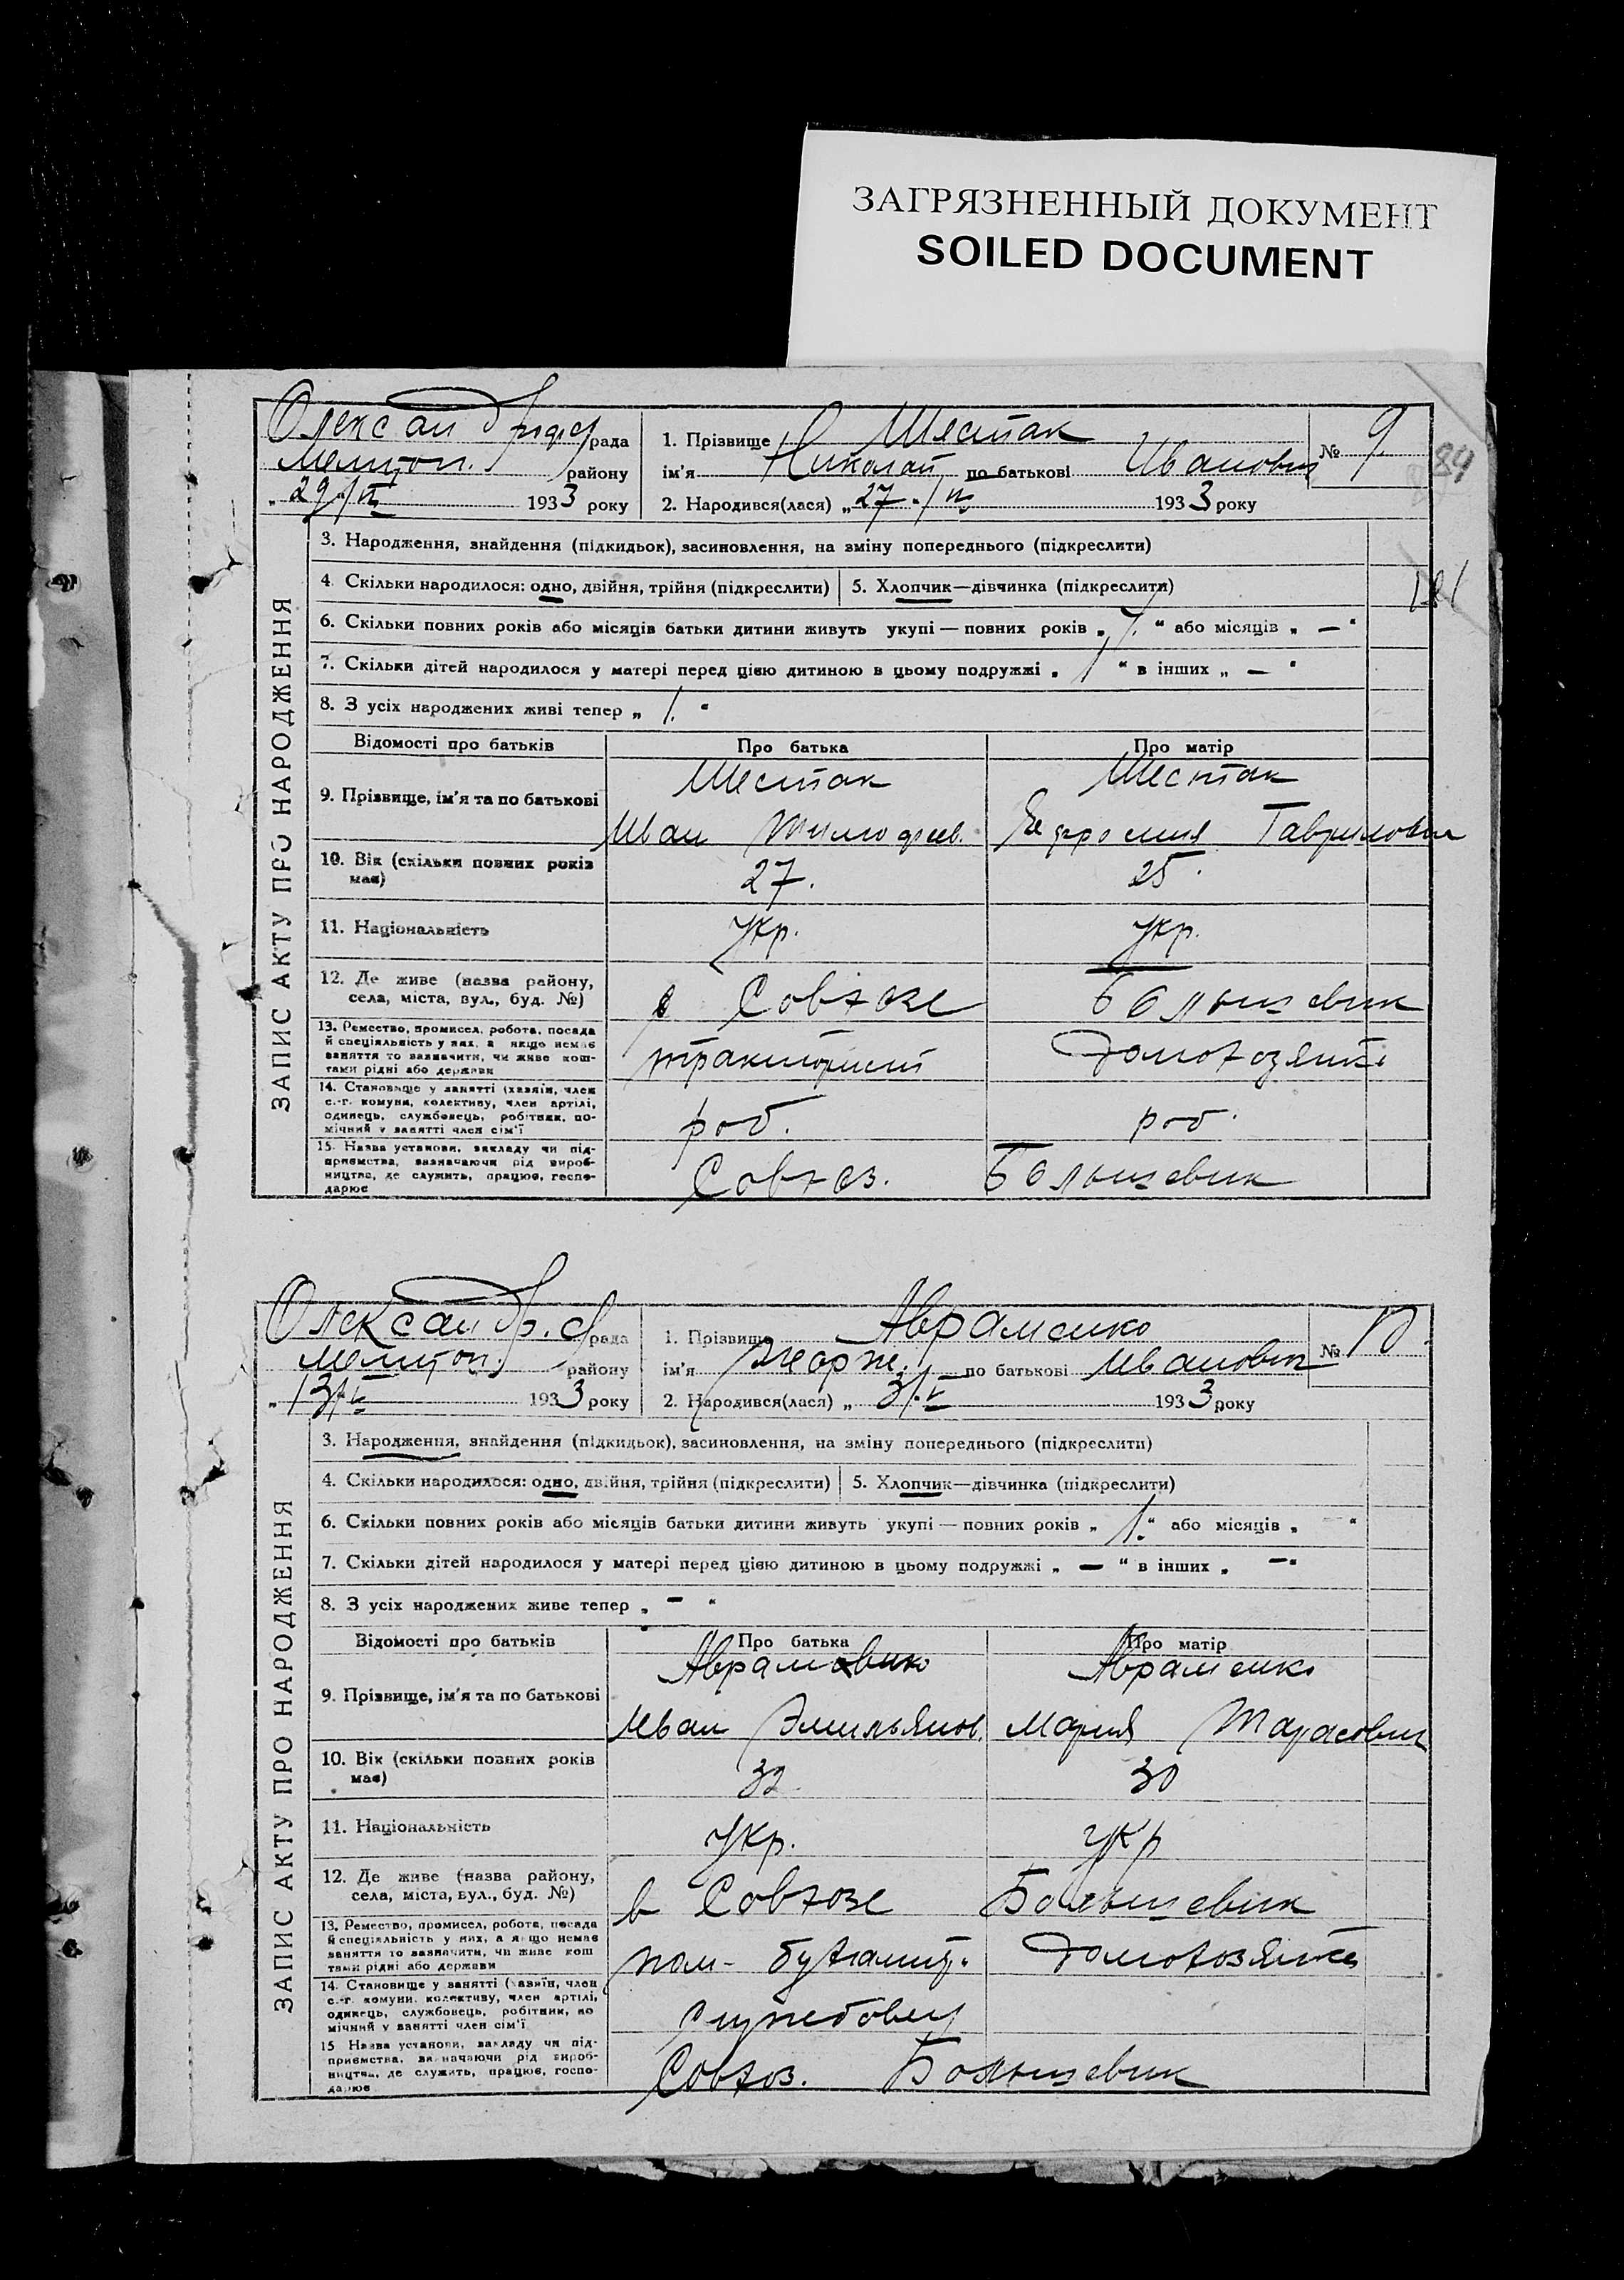 ЗАГРЯЗНЕННЫЙ ДОКУМЕНТ
SOILED DOCUMENT
рада
Мелитоп. району
„29/IV 1933 року
1. Прізвище Шестак
ім'я Николай по батькові Иванович
2. Народився(лася) „27./III 1933 року
№ 9
84
ЗАПИС АКТУ ПРО НАРОДЖЕННЯ
3. Народження, знайдення (підкидьок), засиновлення, на зміну попереднього (підкреслити)
4. Скільки народилося: одно, двійня, трійня (підкреслити) 5. Хлопчик—дівчинка (підкреслити)
6. Скільки повних років або місяців батьки дитини живуть укупі — повних років „ 7. “ або місяців „ — “
7. Скільки дітей народилося у матері перед цією дитиною в цьому подружжі „ 1 “ в інших „ — “
8. З усіх народжених живі тепер „ 1. “
Відомості про батьків Про батька Про матір
9. Прізвище, ім'я та по батькові
Шестак Шестак
Иван Тимофеев. Ефросиния Гавриловн
10. Вік (скільки повних років має) 27. 25.
11. Національність укр. укр.
12. Де живе (назва району, села, міста, вул., буд. №) в Совхозе Большевик
13. Ремество, промисел, робота, посада
й спеціяльність у них, а якщо немає
заняття то зазначити, чи живе кош-
тами рідні або держави
тракторист домохозяйка
14. Становище у занятті (хазяїн, член
с.-г. комуни, колективу, член артілі,
одинець, службовець, робітник, по-
мічний у занятті член сім'ї
роб. роб.
15. Назва установи, закладу чи під-
приємства, зазначаючи рід вироб-
ництва, де служить, працює, госпо-
дарює
Совхоз. Большевик
рада
Мелитоп. району
„13/V 1933 року
1. Прізвище Авраменко
ім'я Жорж. по батькові Иванович
2. Народився(лася) „ 3/.V 1933 року
№ 10.
ЗАПИС АКТУ ПРО НАРОДЖЕННЯ
3. Народження, знайдення (підкидьок), засиновлення, на зміну попереднього (підкреслити)
4. Скільки народилося: одно, двійня, трійня (підкреслити) 5. Хлопчик—дівчинка (підкреслити)
6. Скільки повних років або місяців батьки дитини живуть укупі — повних років „ 1. “ або місяців „ — “
7. Скільки дітей народилося у матері перед цією дитиною в цьому подружжі „ — “ в інших „ — “
8. З усіх народжених живе тепер „ — “
Відомості про батьків Про батька Про матір
9. Прізвище, ім'я та по батькові
Авраменко Авраменко
Иван Эмильянов. Мария Тарасовн
10. Вік (скільки повних років має) 32. 30
11. Національність укр. укр
12. Де живе (назва району, села, міста, вул., буд. №) в Совхозе Большевик
13. Ремество, промисел, робота, посада
й спеціяльність у них, а якщо немає
заняття то зазначити, чи живе кош
тами рідні або держави
пом- бухгалт. домохозяйка
14. Становище у занятті (хазяїн, член
с.-г. комуни, колективу, член артілі,
одинець, службовець, робітник, по
мічний у занятті член сім'ї
Службовец
15 Назва установи, закладу чи під-
приємства, зазначаючи рід вироб-
ництва, де служить, працює, госпо-
дарює
Совхоз. Большевик